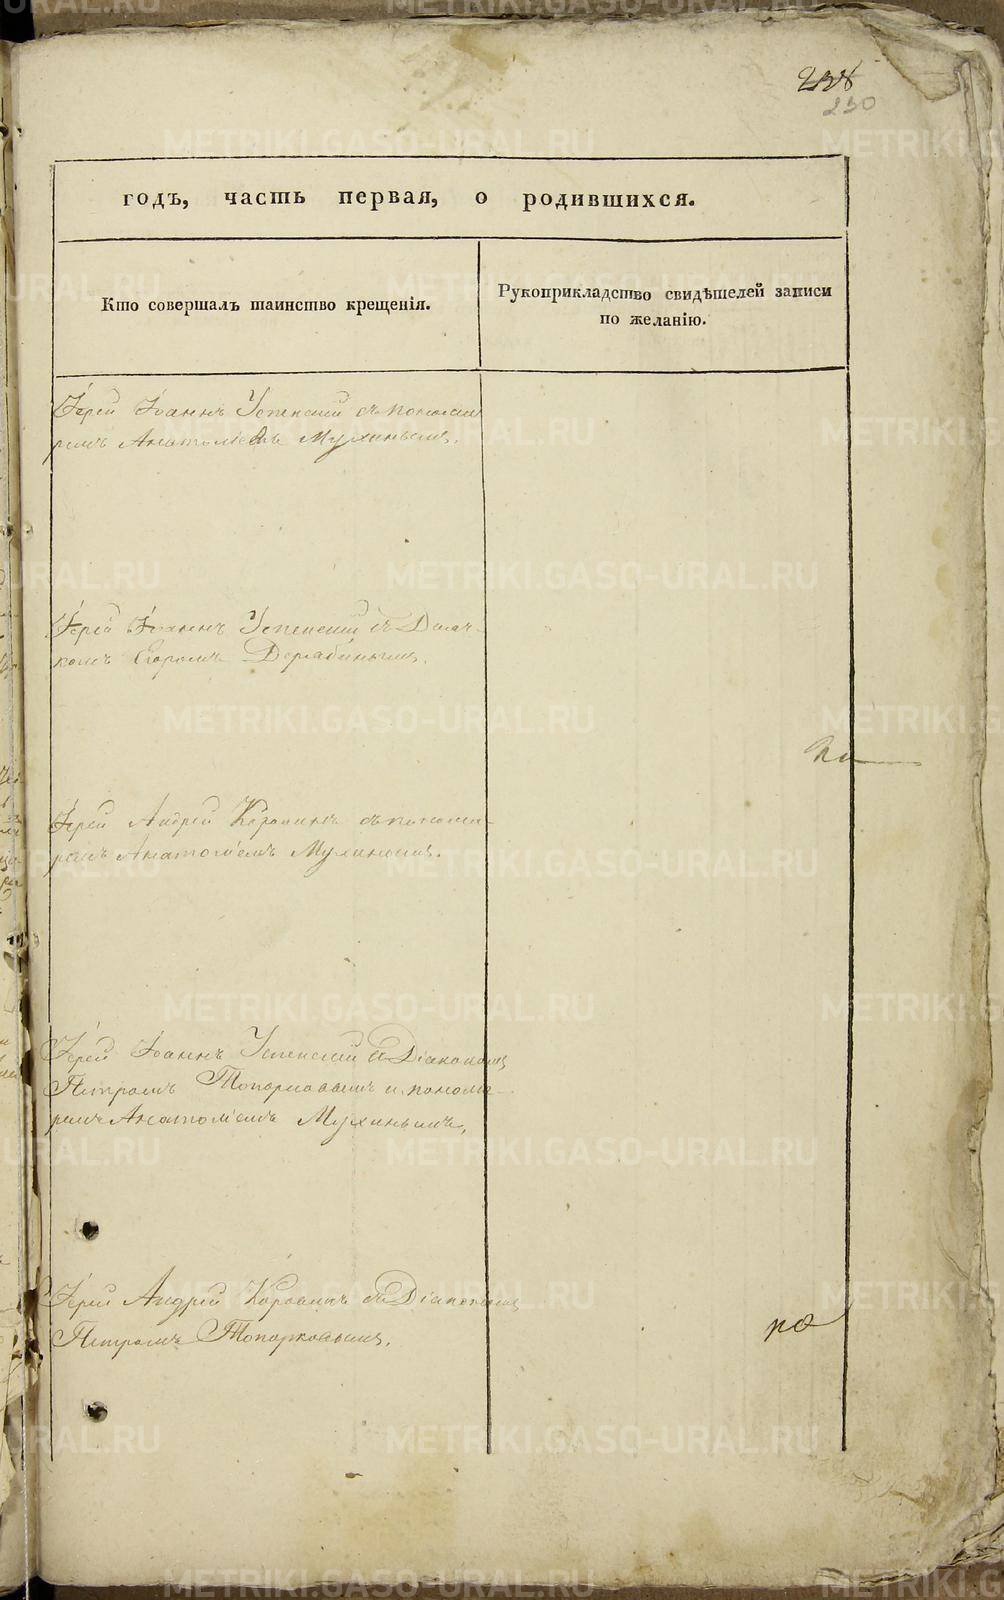 230
годъ, часть первая, о родившихся.
Кто совершалъ таинство крещенія.
Рукоприкладство свидѣтелей записи
по желанію.
Іерей Іоаннъ Успенскій съ понома
ремъ Анатоліемъ Мухинымъ.
Іерей Іоаннъ Успенскій съ Дьяч-
комъ Егоромъ Дерябинымъ.
Іерей Андрей Коровинъ съ понома-
ремъ Анатоліемъ Мухинымъ.
Іерей Іоаннъ Успенскій съ Діакономъ
Петромъ Топорковымъ и понома-
ремъ Анатоліемъ Мухинымъ.
Іерей Андрей Коровинъ съ Діакономъ
Петромъ Топорковымъ.
METRIKI.GASO-URAL.RU